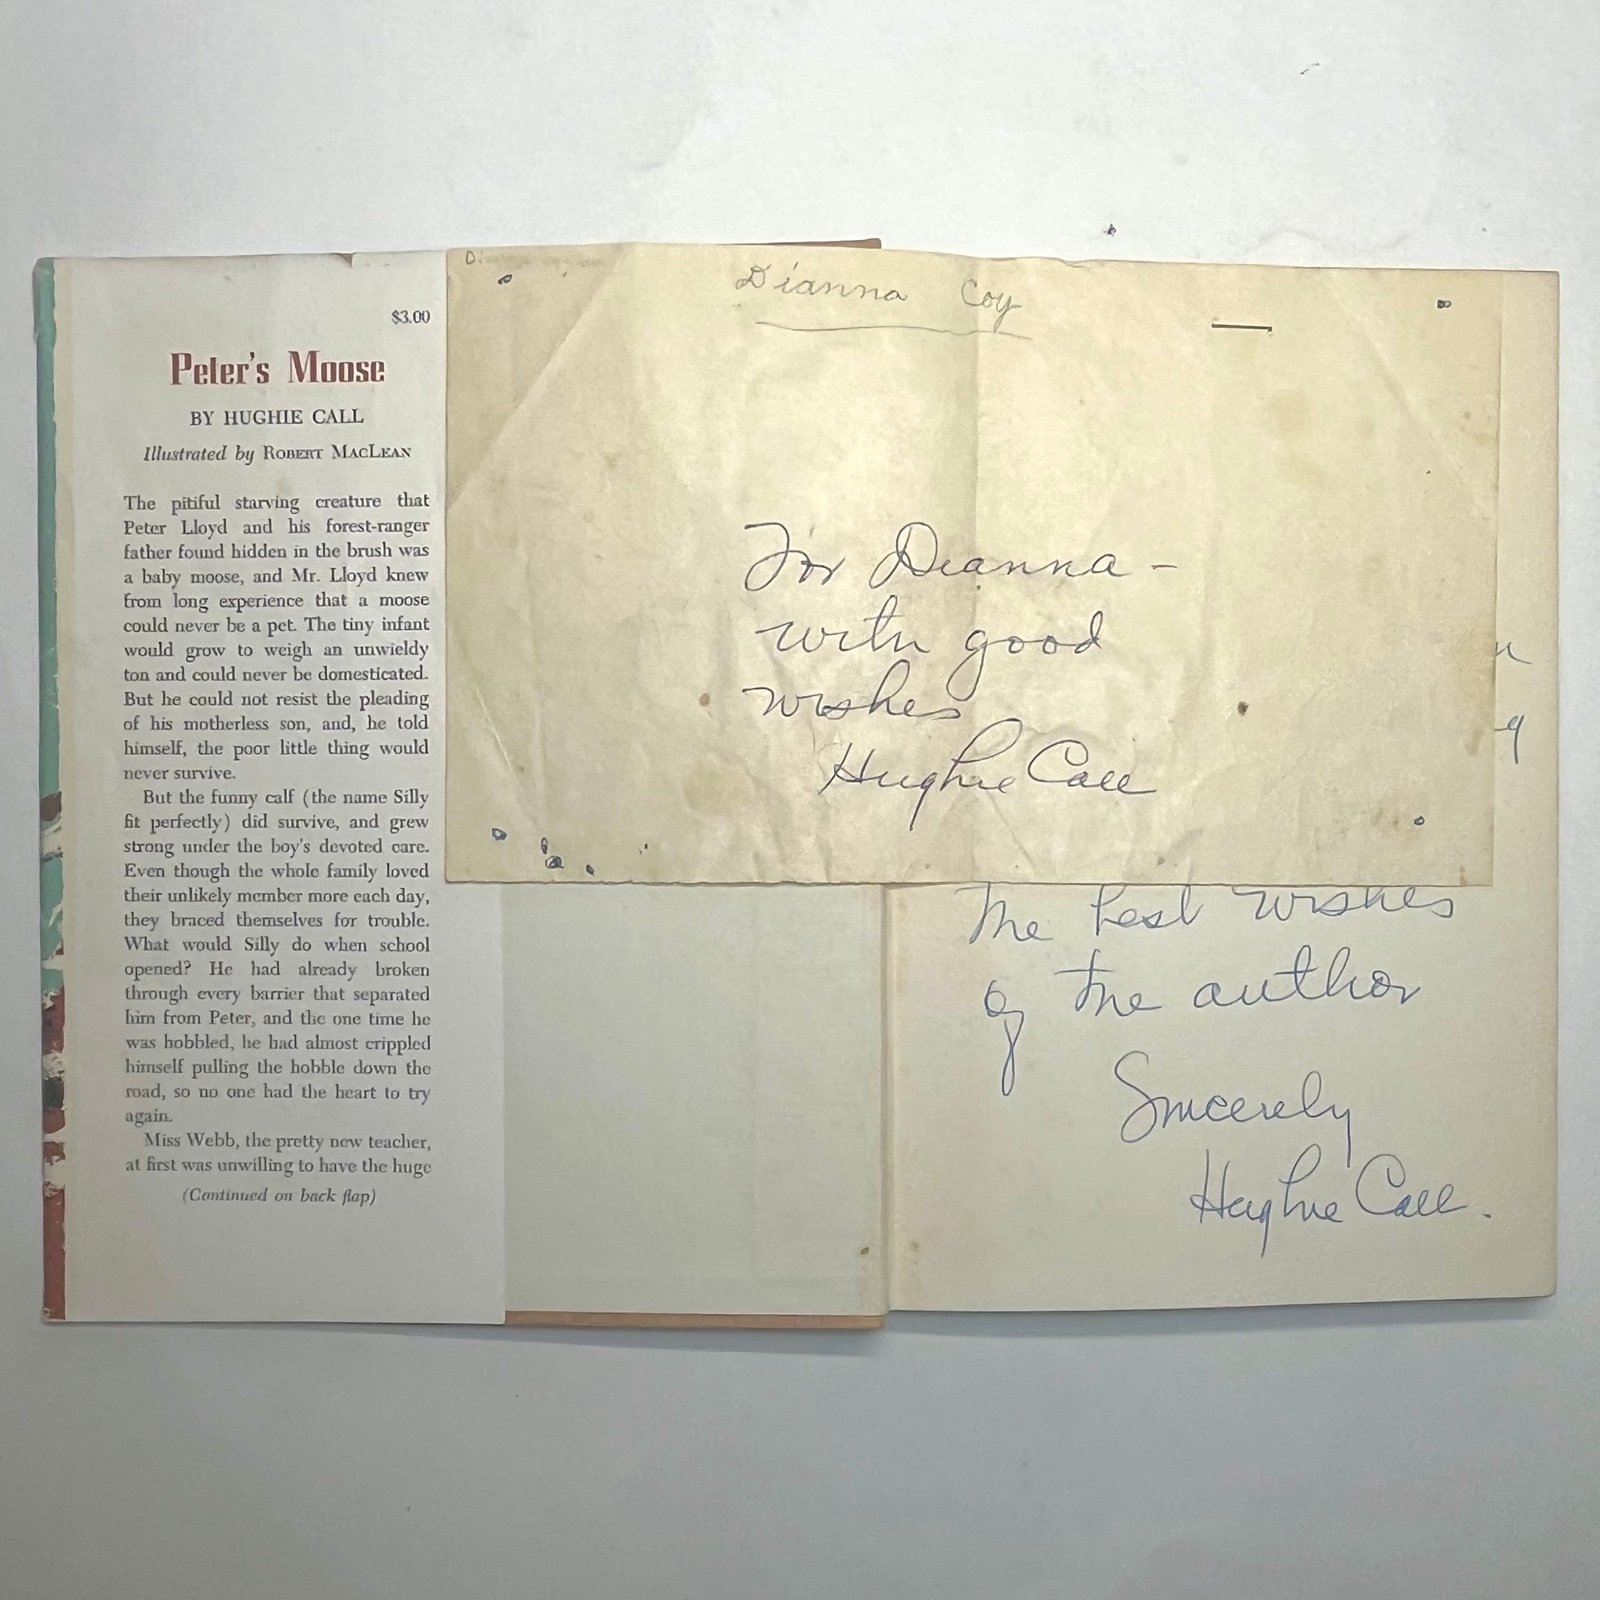 $3.00
Peter's Moose
BY HUGHIE CALL
Illustrated by ROBERT MACLEAN
The pitiful starving creature that
Peter Lloyd and his forest-ranger
father found hidden in the brush was
a baby moose, and Mr. Lloyd knew
from long experience that a moose
could never be a pet. The tiny infant
would grow to weigh an unwieldy
ton and could never be domesticated.
But he could not resist the pleading
of his motherless son, and, he told
himself, the poor little thing would
never survive.
But the funny calf (the name Silly
fit perfectly) did survive, and grew
strong under the boy's devoted care.
Even though the whole family loved
their unlikely member more each day,
they braced themselves for trouble.
What would Silly do when school
opened? He had already broken
through every barrier that separated
him from Peter, and the one time he
was hobbled, he had almost crippled
himself pulling the hobble down the
road, so no one had the heart to try
again.
Miss Webb, the pretty new teacher,
at first was unwilling to have the huge
(Continued on back flap)
Dianna Coy
For Dianna -
with good
wishes
Hughie Call
The best wishes
of the author
Sincerely
Hughie Call.